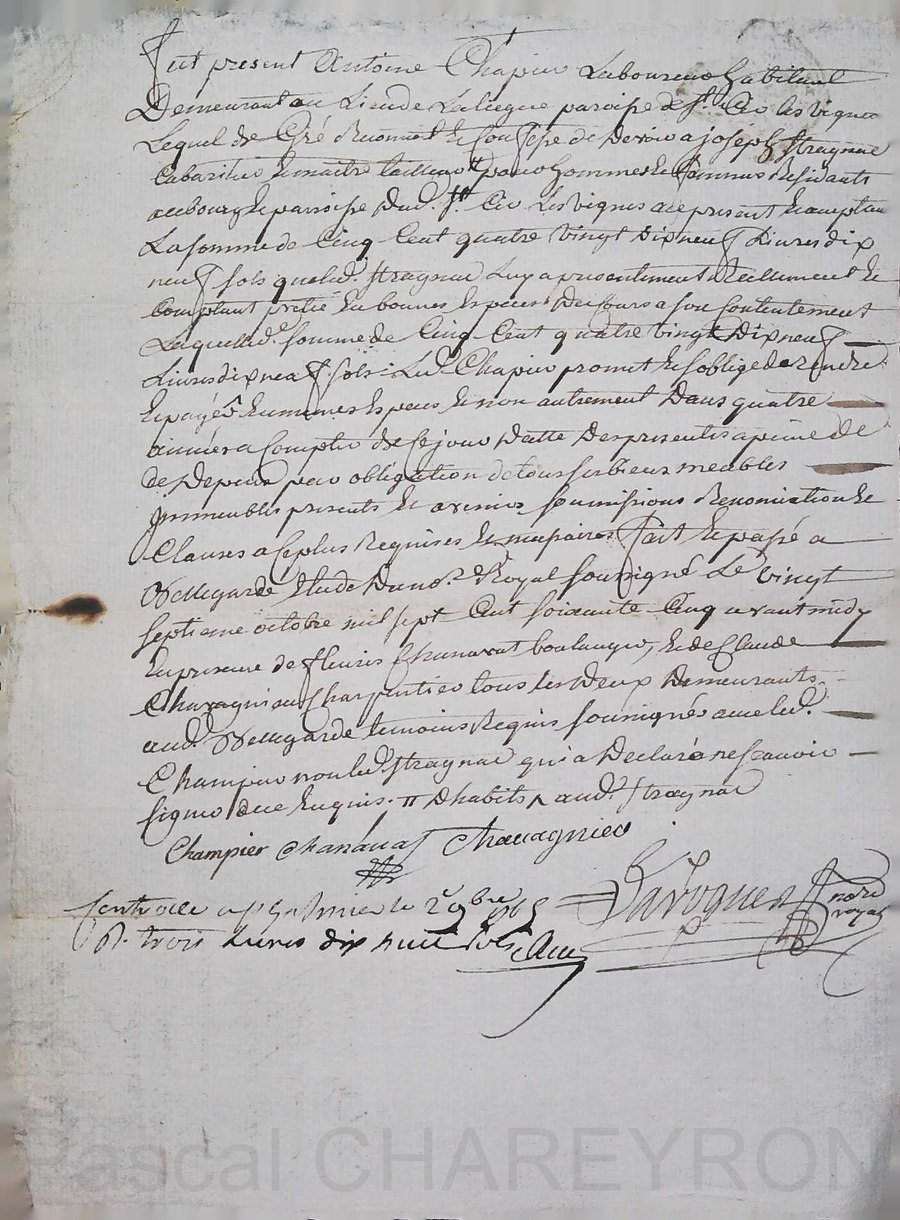 Fut present Antoine Chapier Laboureur habitant
Demeurant au Lieu de paroisse de St. Cir les vignes
Lequel de Gré Reconnoit et Confesse de devoir a joseph Stragnac
Cabaretier et maitre tailleur pour hommes et femmes Residants
au bourg et paroisse dud. St. Cir Les vignes present et acceptant
La somme de Cinq Cent quatre vingt dix neuf Livres dix
neuf sols que led. Stragnac Luy a presentement Reellement et
Comptant preté en bonnes Especes de Cours a son Contentement
Laquelle d. somme de Cinq Cent quatre vingt Dix neuf
Livres dix neuf sols Led. Chapier promet et s'oblige de rendre
et payer en memes Especes et non autrement Dans quatre
années a Compter de Ce jour datte Des presentes a peine de
de Depens par obligation de tous ses biens meubles
immeubles presents et avenir soumissions Renonciation et
Clauses a Ce plus Requises et necessaires fait et passé a
Bellegarde Etude Du no.re Royal soussigné Le vingt
septieme octobre mil sept Cent soixante Cinq avant midy
En presence de fleuris Chanavat boulanger, et de Claude
Chavagnieu Charpentier tous les deux Demeurants
aud. Bellegarde temoins Requis soussignés avec led.
Champier non led. Stragnac qui a Declaré ne scavoir
signer de ce Enquis. D'habits aud. Stragnac
Champier Chanavat Chavagnieu
Laroque no.re royal
Controllé a le 2 9bre 1765
R. trois Livres dix huit sols
Pascal CHAREYRON